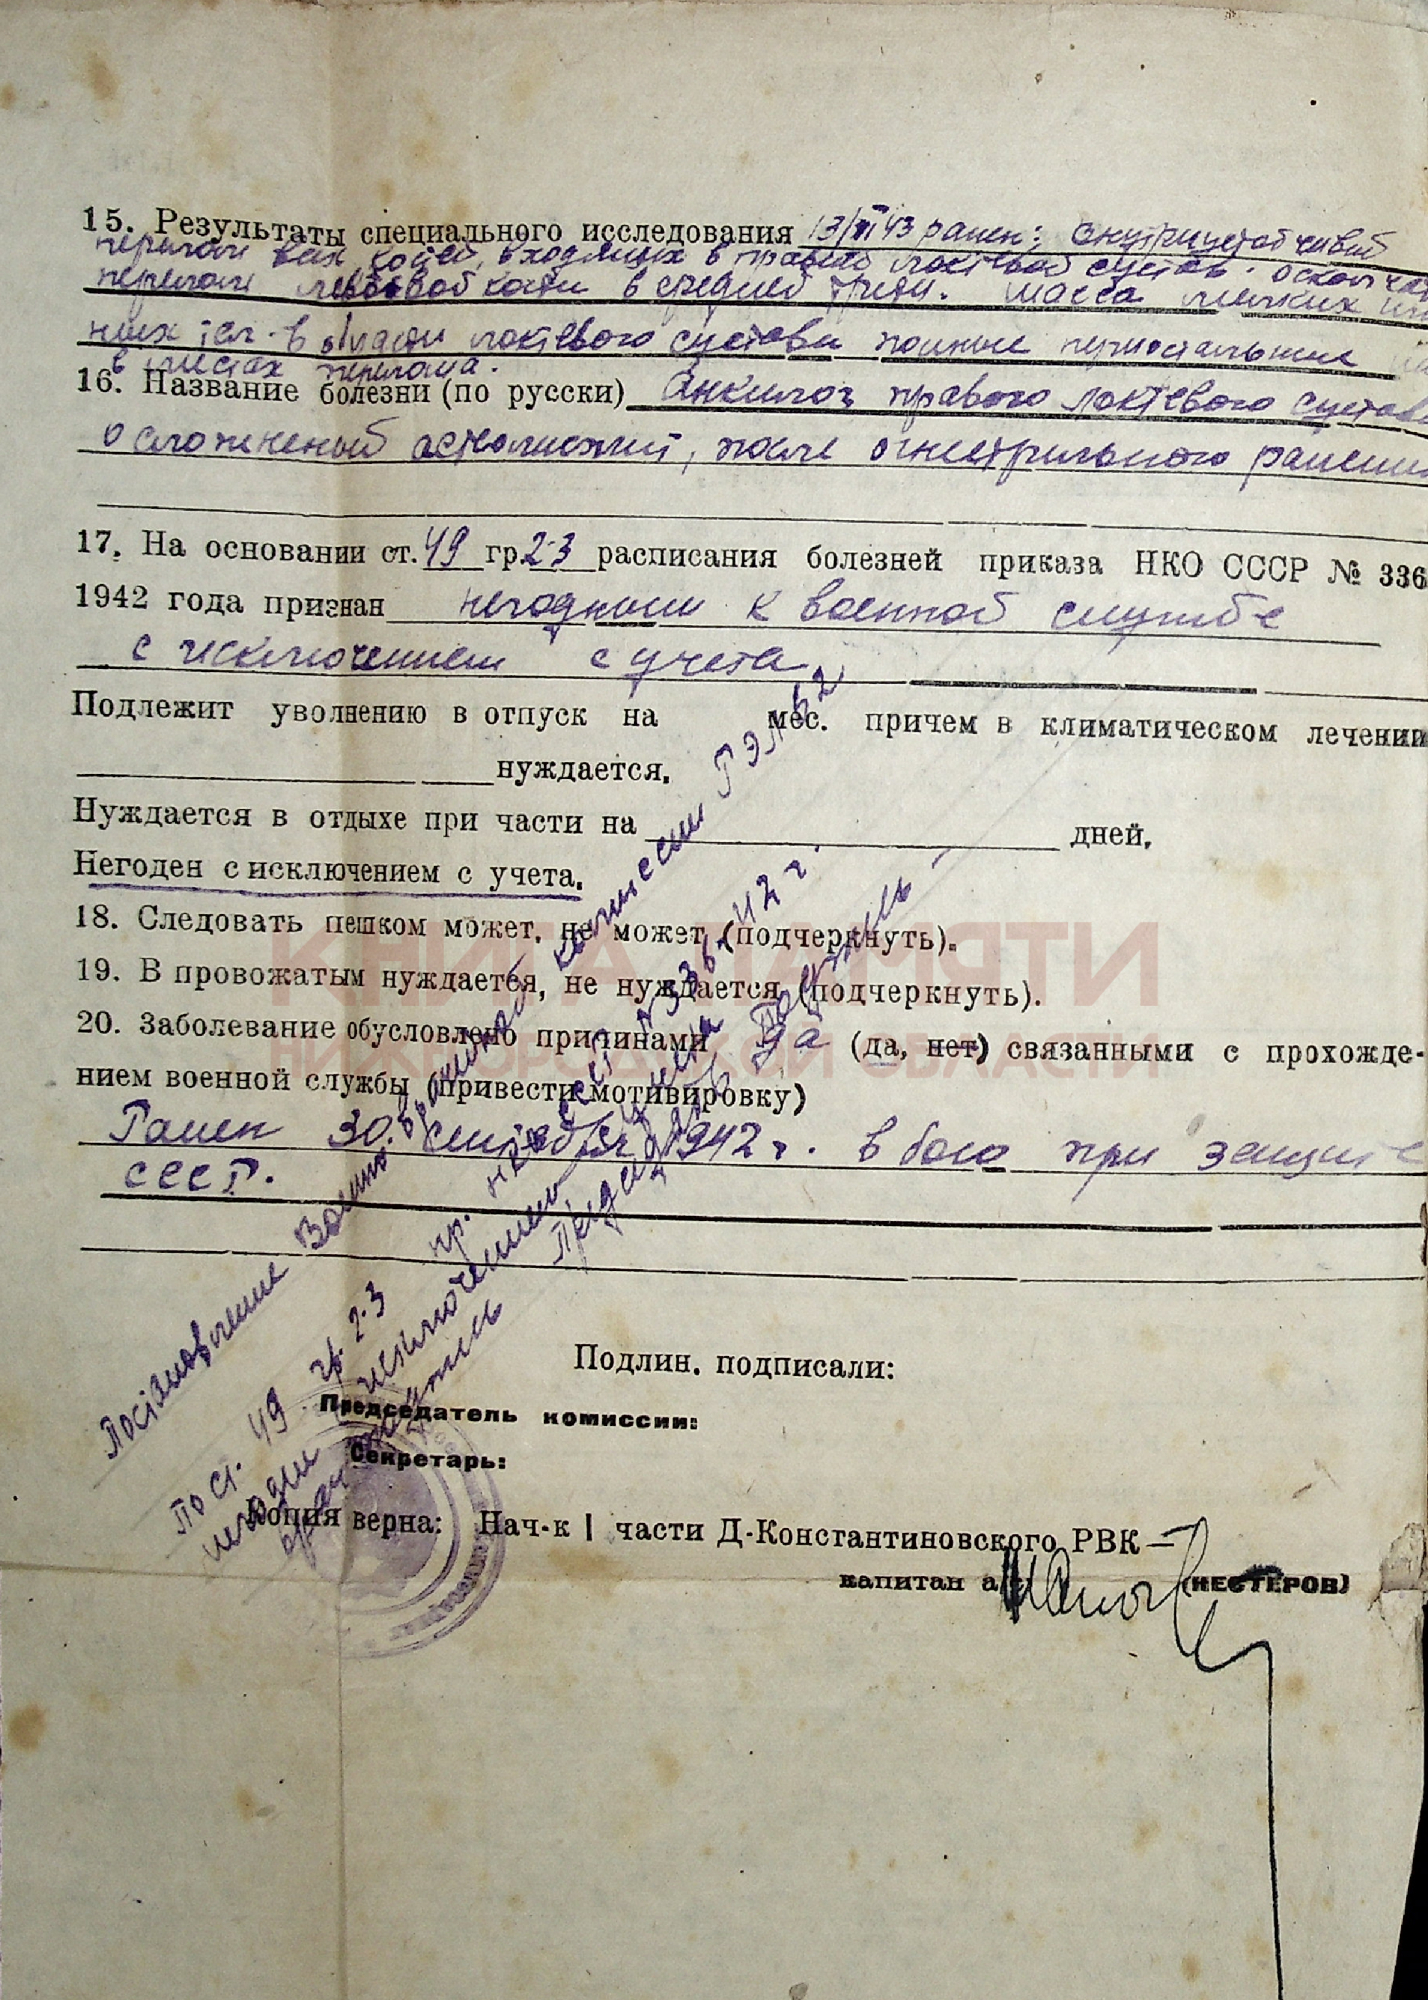 15. Результаты специального исследования 13/VI 43 ранен: внутрисуставчивый
перелом всех костей, входящих в правый локтевой сустав. оскольчат
перелом левой кости в средней трети. Масса мелких
них тел в области локтевого сустава периостальные
в местах перелома.
16. Название болезни (по русски) Анкилоз правого локтевого сустава
осложненый остеомиэлит, после огнестрельного ранения
17. На основании ст. 49 гр 2-3 расписания болезней приказа НКО СССР № 336
1942 года признан негодным к военной службе
с исключением с учета.
Подлежит уволнению в отпуск на мес. причем в климатическом лечении
нуждается.
Нуждается в отдыхе при части на дней.
Негоден с исключением с учета.
18. Следовать пешком может, не может (подчеркнуть).
19. В провожатым нуждается, не нуждается (подчеркнуть).
20. Заболевание обусловлено причинами да (да, нет) связанными с прохожде-
нием военной службы (привести мотивировку)
Ранен 30. сентября 1942 г. в бою при защите
СССР.
Постановление Военно врачебной комиссии РЭП 62
По ст. 49 гр. 2-3 пр. НКО СССР № 336-42 г.
негоден с исключением с учета
Председатель
Подлин. подписали:
Председатель комиссии:
Секретарь:
Копия верна: Нач-к 1 части Д-Константиновского РВК —
капитан а/с (НЕСТЕРОВ)
КНИГА ПАМЯТИ
НИЖЕГОРОДСКОЙ ОБЛАСТИ